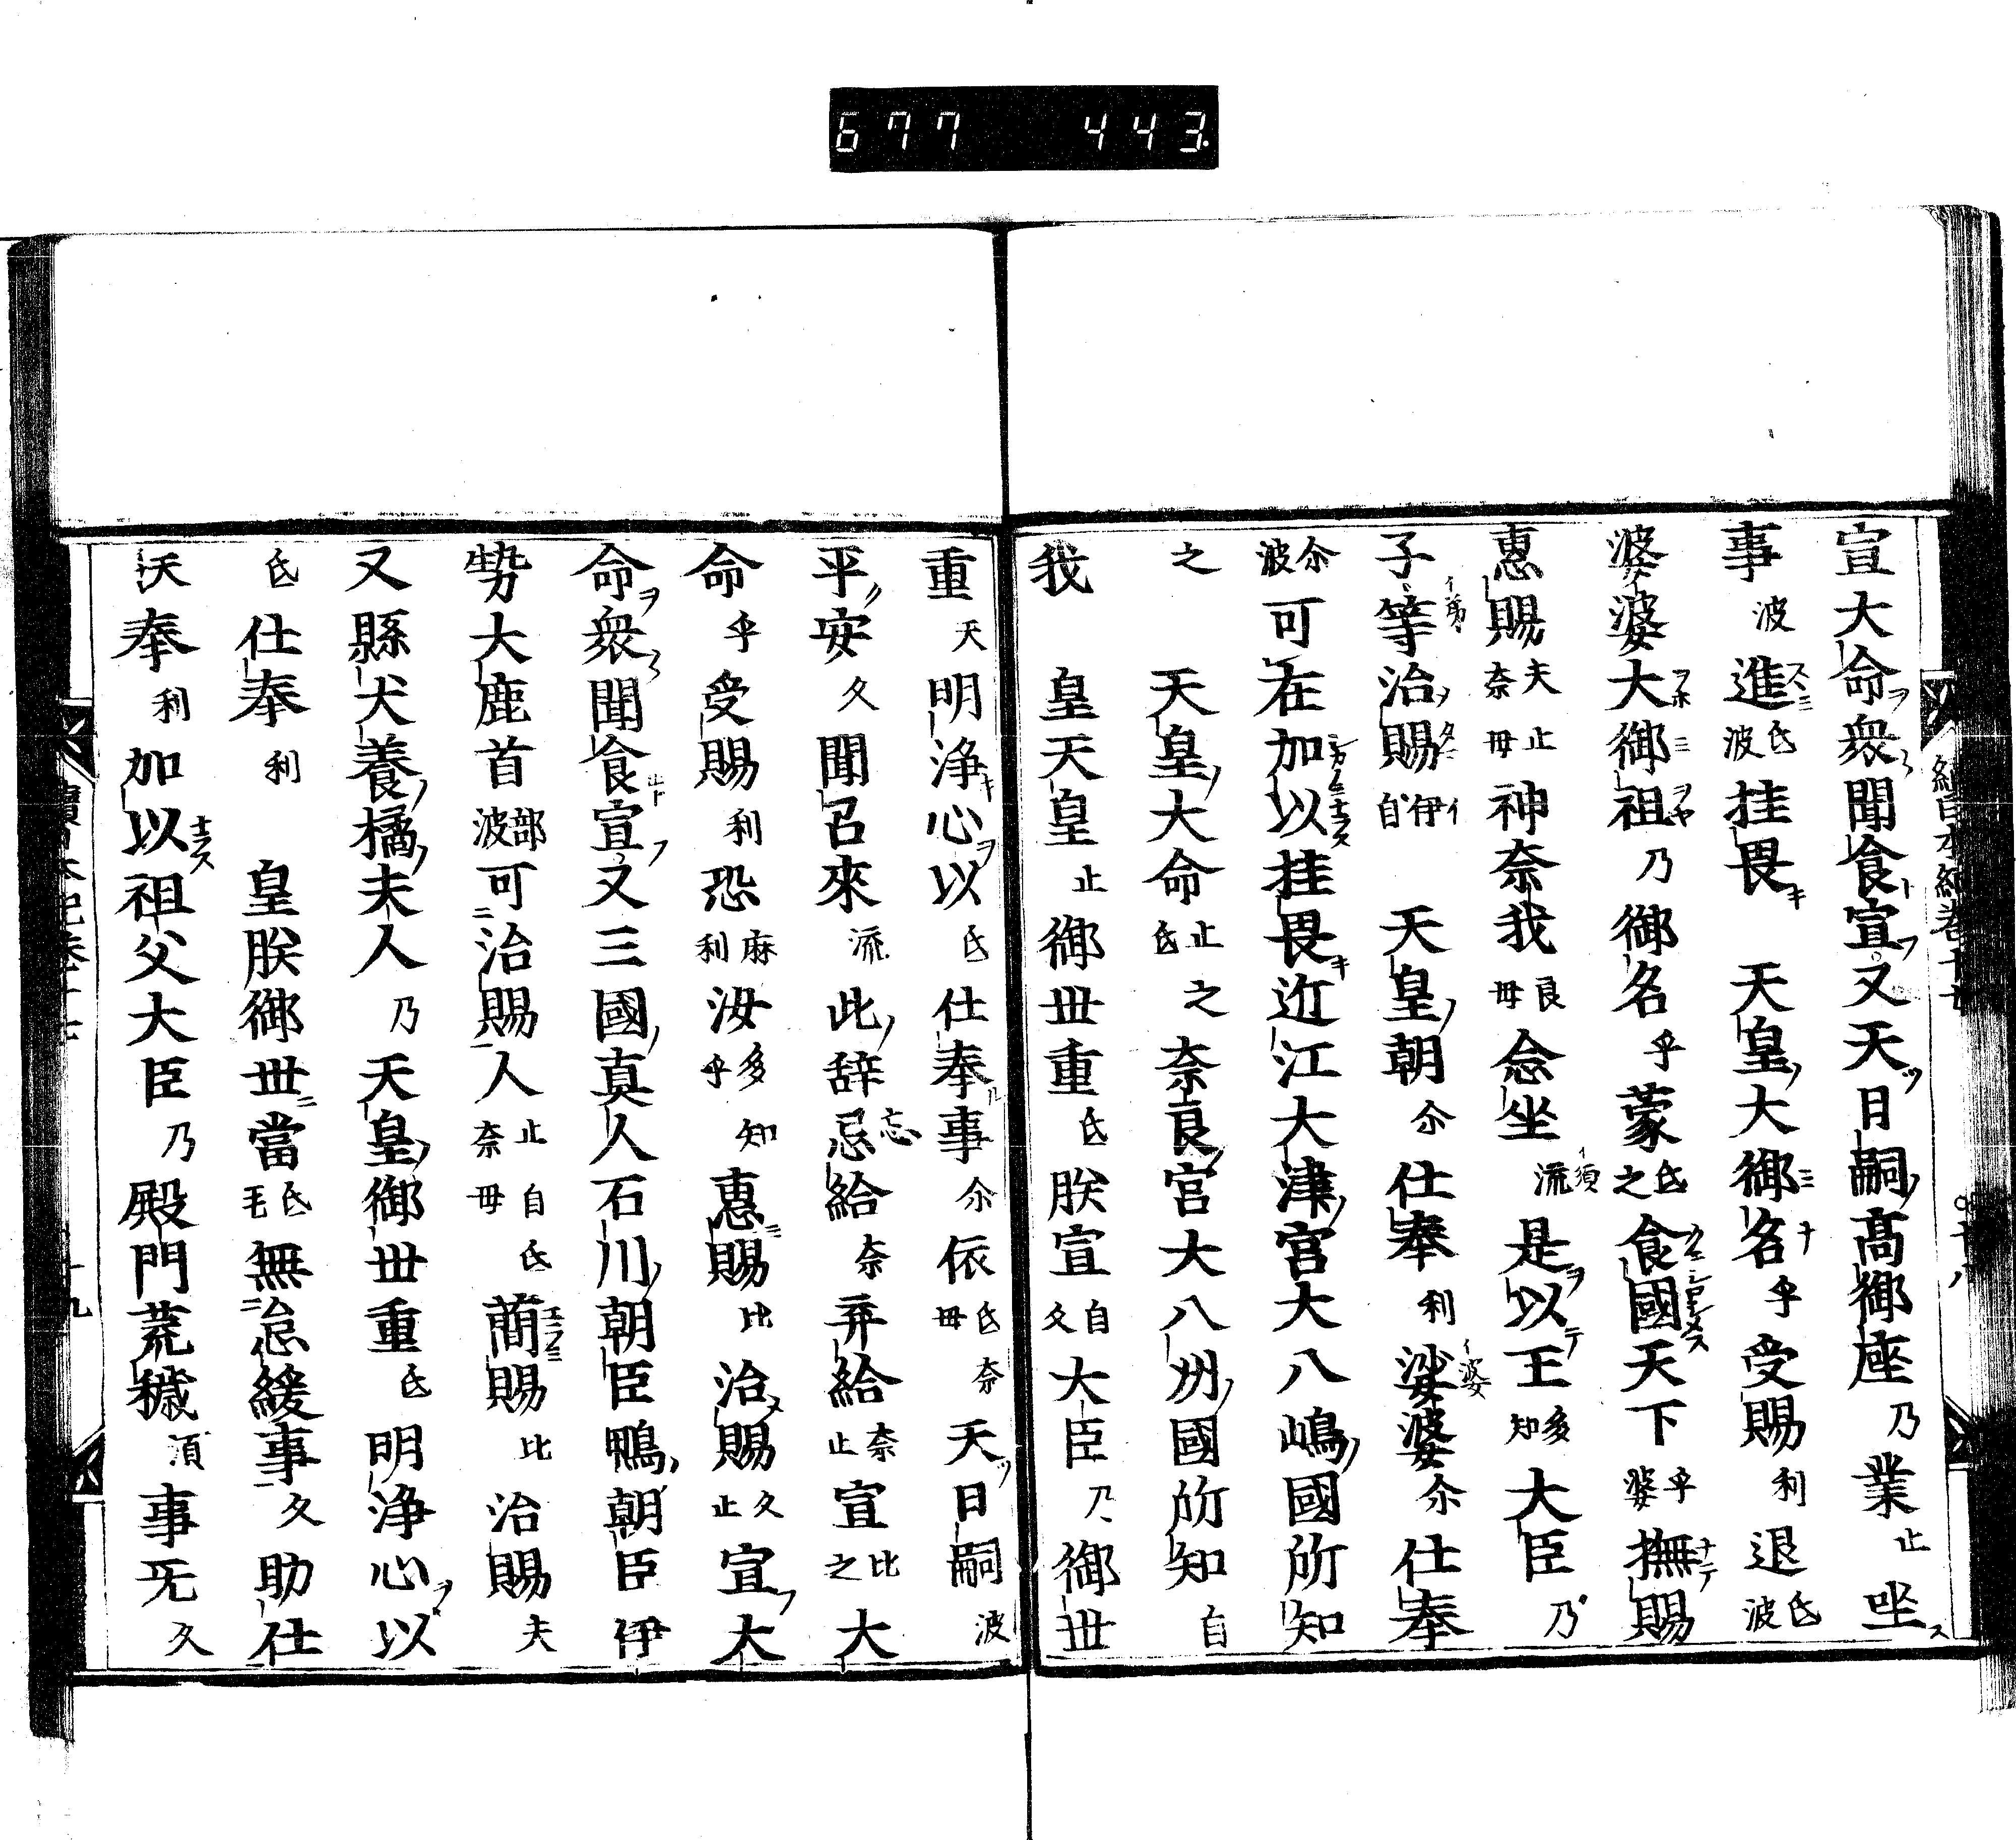 677 443.
宣大命衆聞食宣又天日嗣髙御座乃業止坐
事波進氐波挂畏 天皇大御名乎受賜利退氐波
婆婆大御祖乃御名乎蒙氐之食國天下乎婆撫賜
惠賜夫止奈毋神奈我良毋念坐流是以王多知大臣乃
子等治賜伊自 天皇朝尒仕奉利娑婆尒仕奉
尒波可在加以挂畏近江大津宮大八嶋國所知
之 天皇大命止氐之奈良宮大八州國所知自
我 皇天皇止御世重氐朕宣自久大臣乃御世
重天明浄心以氐仕奉事尒依氐毋奈天日嗣波
平安久聞召來流此辞忌給奈弃給奈止宣比之大
命乎受賜利恐麻利汝多乎知惠賜比治賜久止宣大
命衆聞食宣又三國真人石川朝臣鴨朝臣伊
㔟大鹿首部波可治賜人止奈自毋氐蕳賜比治賜夫
又縣犬養橘夫人乃天皇御世重氐明浄心以
氐仕奉利 皇朕御世當氐毛無怠緩事久助仕
天奉利加以祖父大臣乃殿門荒穢湏事旡久